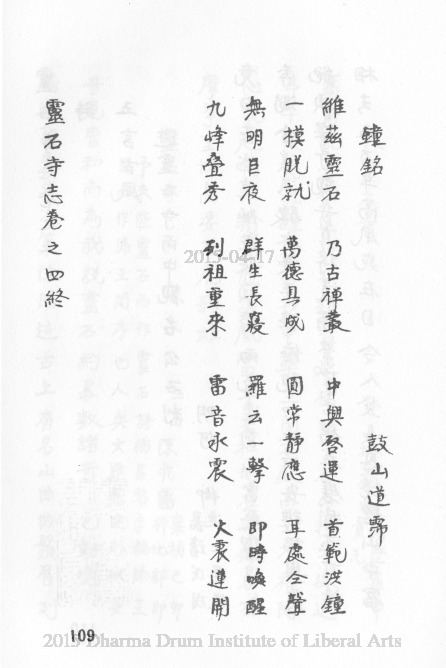 鐘銘
鼓山道霈
維茲靈石 乃古禪叢 中興啓運 首範洪鐘
一模脫就 萬德具成 圓常靜應 耳處全聲
無明巨夜 群生長寢 羅云一擊 即時喚醒
九峰疊秀 列祖重來 雷音永震 火裏蓮開
靈石寺志卷之四終
109
2015-04-17
2015 Dharma Drum Institute of Liberal Arts